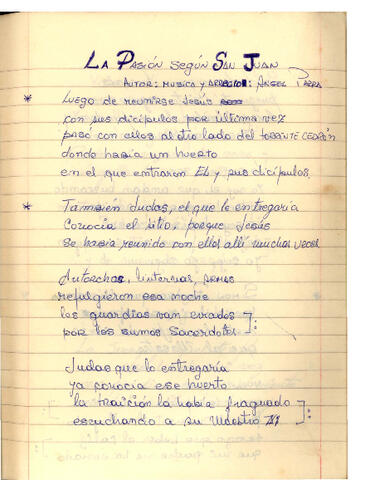 LA PASIÓN SEGÚN SAN JUAN
AUTOR: MUSICA Y ARREGLOS: ÁNGEL PARRA
* Luego de reunirse Jesús
con sus dicípulos por última vez
pasó con ellos al otro lado del TORRENTE CEDRÓN
donde había un huerto
en el que entraron EL y sus dicípulos.
* También Judas, el que le entregaría
Conocía el sitio, porque Jesús
se había reunido con ellos allí muchas veces
Antorchas, linternas, armas
refulgieron esa noche
los guardias van enviados
por los sumos Sacerdotes ]:
Judas que lo entregaría
ya conocía ese huerto
la traición la había fraguado
escuchando a su Maestro ]: